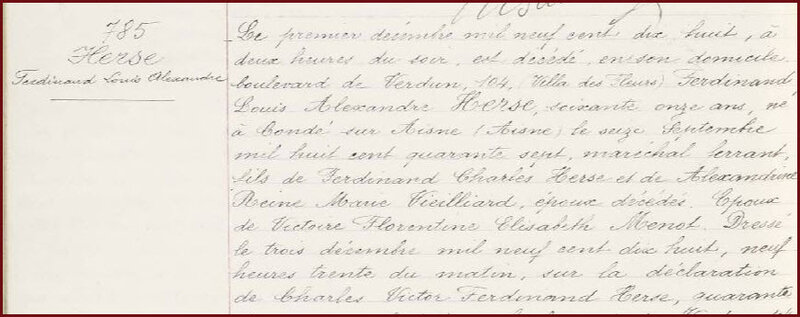 785
Herse
Ferdinand Louis Alexandre
Le premier décembre mil neuf cent dix huit, à
deux heures du soir, est décédé, en son domicile
boulevard de Verdun, 104, (Villa des Fleurs) Ferdinand,
Louis Alexandre Herse, soixante onze ans, né
à Condé sur Aisne (Aisne) le seize Septembre
mil huit cent quarante sept, maréchal ferrant,
fils de Ferdinand Charles Herse et de Alexandrine
Reine Marie Vieilliard, époux décédés. Epoux
de Victoire Florentine Elisabeth Menot. Dressé
le trois décembre mil neuf cent dix huit, neuf
heures trente du matin, sur la déclaration
de Charles Victor Ferdinand Herse, quarante